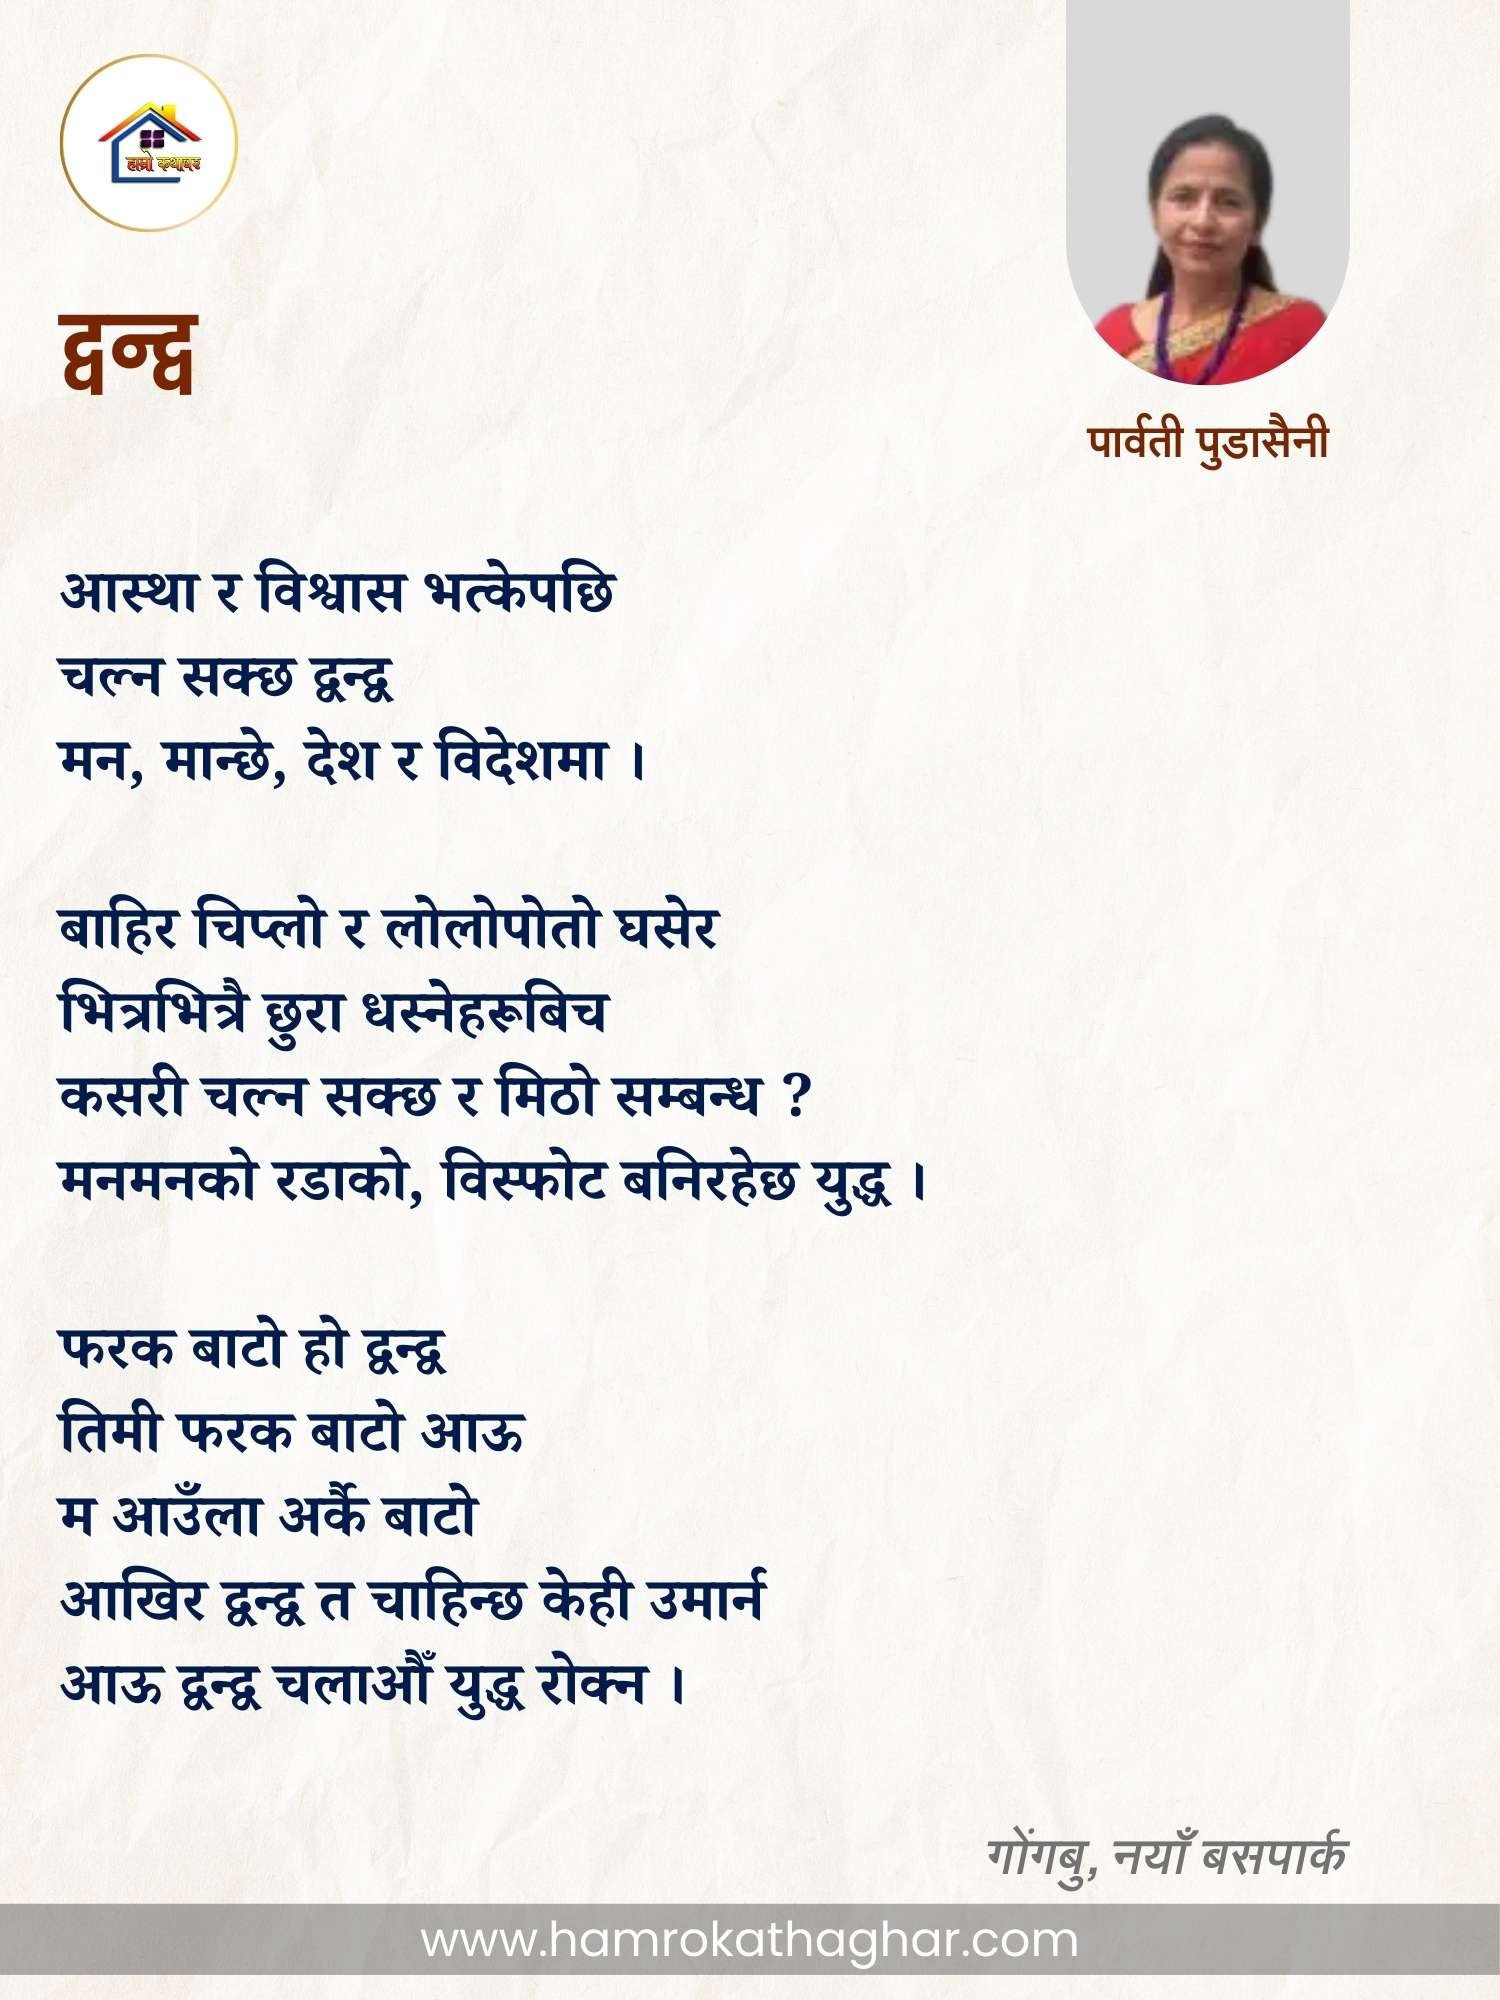 हाम्रो कथाघर
द्वन्द्व
पार्वती पुडासैनी
आस्था र विश्वास भत्केपछि
चल्न सक्छ द्वन्द्व
मन, मान्छे, देश र विदेशमा ।
बाहिर चिप्लो र लोलोपोतो घसेर
भित्रभित्रै छुरा धस्नेहरूबिच
कसरी चल्न सक्छ र मिठो सम्बन्ध ?
मनमनको रडाको, विस्फोट बनिरहेछ युद्ध ।
फरक बाटो हो द्वन्द्व
तिमी फरक बाटो आऊ
म आउँला अर्कै बाटो
आखिर द्वन्द्व त चाहिन्छ केही उमार्न
आऊ द्वन्द्व चलाऔँ युद्ध रोक्न ।
गोंगबु, नयाँ बसपार्क
www.hamrokathaghar.com